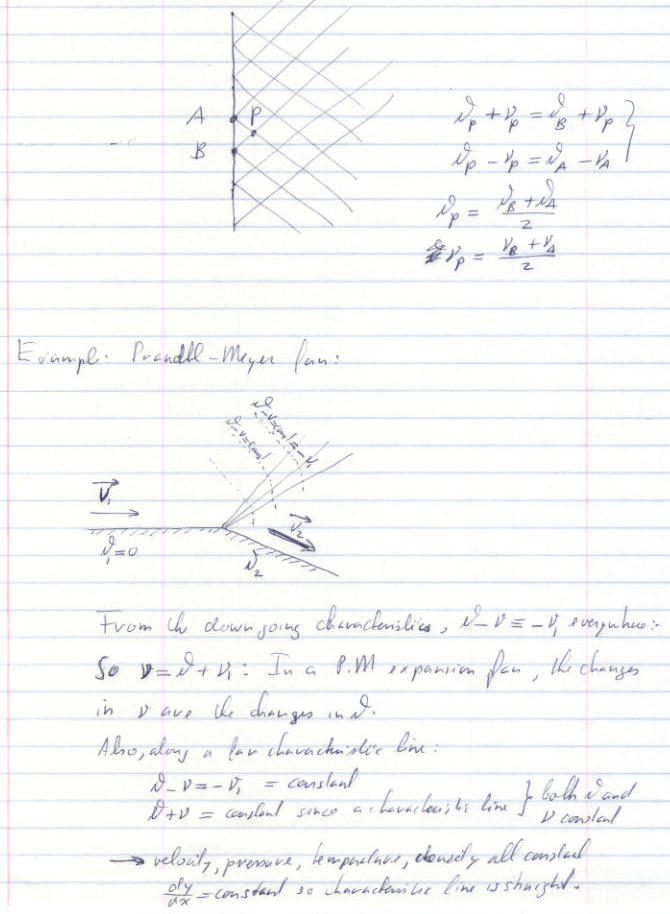 A
P
B
ϑ_P + ν_P = ϑ_B + ν_P
ϑ_P − ν_P = ϑ_A − ν_A
ϑ_P = (ν_B + ϑ_A)/2
ν_P = (ν_B + ν_A)/2
Example: Prandtl-Meyer fan:
ϑ-ν=const=-ν₁
ϑ-ν=const
V₁
ϑ₁=0
V₂
ϑ₂
From the downgoing characteristics, ϑ-ν ≡ -ν₁ everywhere:-
So ν=ϑ+ν₁: In a P.M expansion fan, the changes
in ν are the changes in ϑ.
Also, along a fan characteristic line:
ϑ-ν=-ν₁ = constant
ϑ+ν = constant since a characteristic line } both ϑ and
ν constant
→ velocity, pressure, temperature, density all constant
dy/dx = constant so characteristic line is straight.